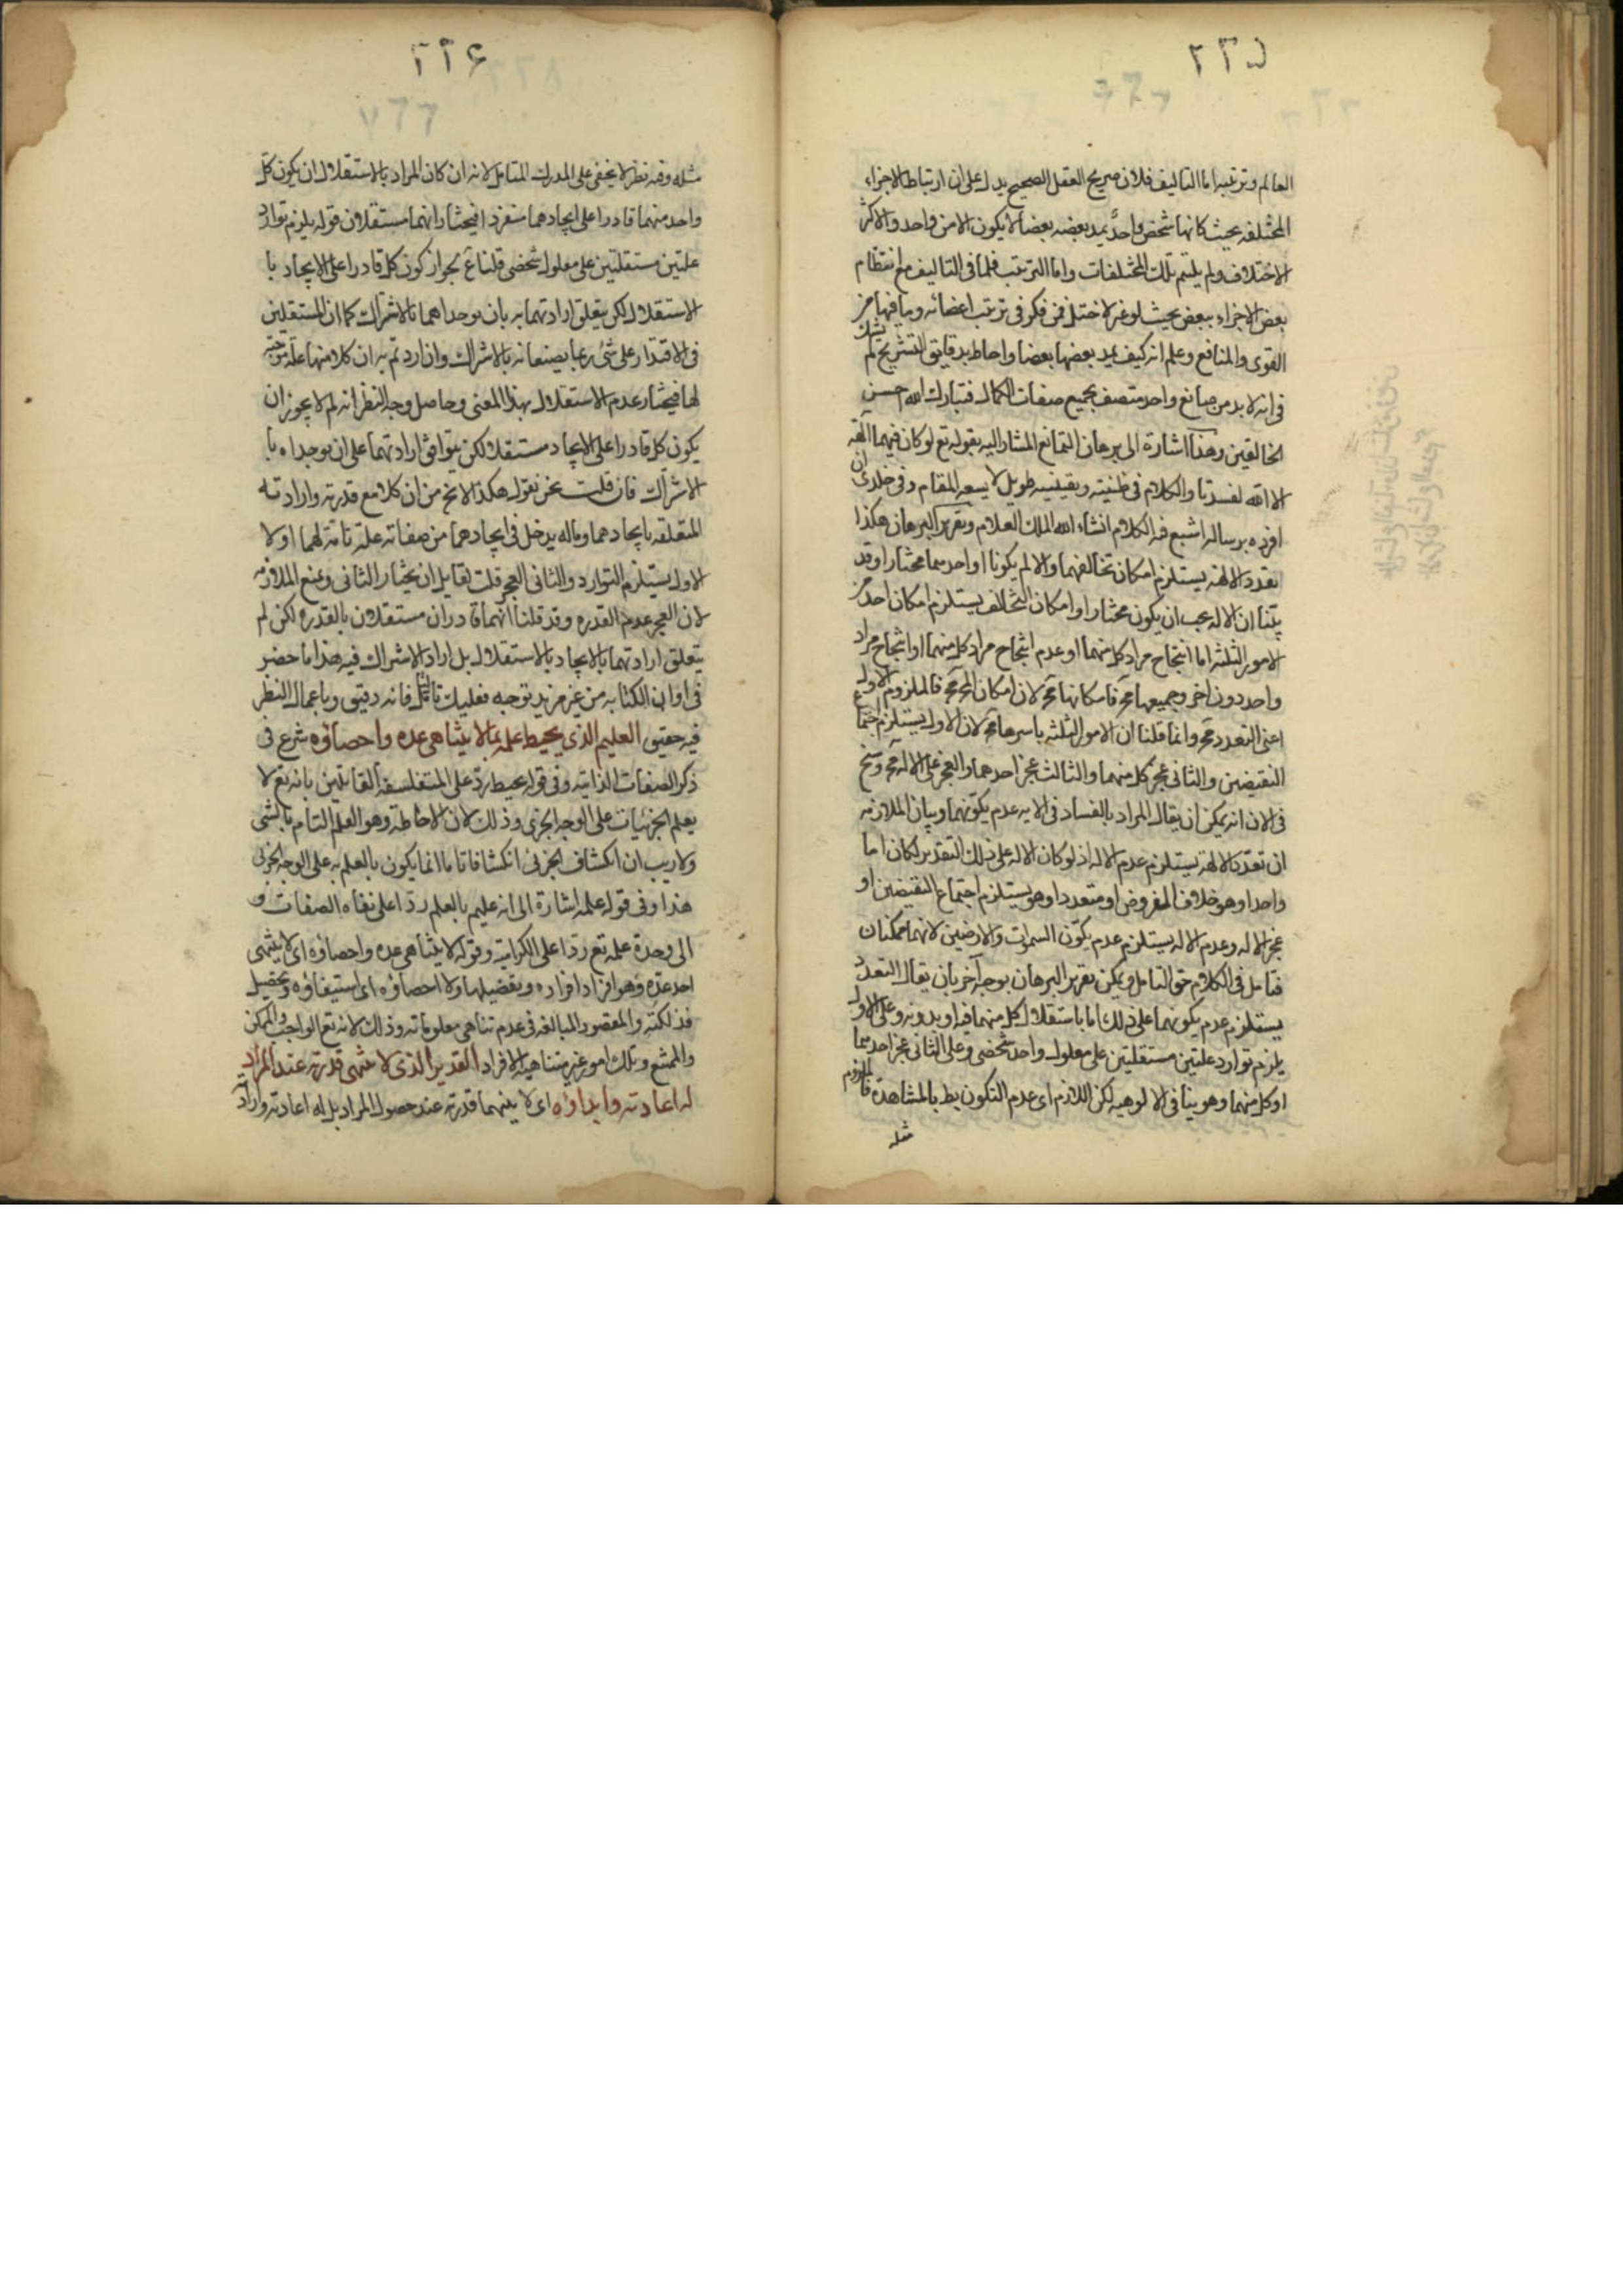 ٢٢٥
العالم وترتيبه اما التاليف فلان صريح العقل الصحيح يدل على ان ارتباط الاجزاء
المختلفه بحيث كانها شخص واحد يمد بعضه بعضا لا يكون الا من واحد والا كثر
الاختلاف ولم يلتئم تلك المختلفات واما الترتيب فلما فى التاليف مع انتظام
بعض الاجزاء ببعض بحيث لو غير لاختل فمن فكر فى ترتيب اعضائه وما فيها من
القوى والمنافع وعلم انه كيف يمد بعضها بعضا واحاط بدقايق التشريح لم يشك
فى انه لا بد من صانع واحد متصف بجميع صفات الكمال فتبارك الله احسن
الخالقين وهذا اشارة الى برهان التمانع المشار اليه بقوله تع لو كان فيهما آلهة
الا الله لفسدتا والكلام فى ظنيته ويقينيته طويل لا يسعه المقام وفى خلدى ان
افرده برساله اشبع فيه الكلام انشاء الله الملك العلام وتقرير البرهان هكذا
تعدد الالهة يستلزم امكان تخالفهما والا لم يكونا او احدهما مختارا وقد
بينا ان الاله يجب ان يكون مختارا وامكان التخالف يستلزم امكان احد
الامور الثلثه اما انتجاح مراد كل منهما او عدم انتجاح مراد كل منهما او انتجاح مراد
واحد دون اخر وجميعها مح فامكانها مح لان امكان المح مح فالملزوم الاول
اعنى التعدد مح وانما قلنا ان الامور الثلثه باسرها مح لان الاول يستلزم اجتماع
النقيضين والثانى عجز كل منهما والثالث عجز احدهما والعجز على الاله مح وسنح
فى الان انه يمكن ان يقال المراد بالفساد فى الايه عدم تكونهما وبيان الملازمه
ان تعدد الالهة يستلزم عدم الاله اذ لو كان الاله على ذلك التقدير لكان اما
واحدا وهو خلاف المفروض او متعددا وهو يستلزم اجتماع النقيضين او
عجز الاله وعدم الاله يستلزم عدم تكون السموات والارضين لانهما ممكنان
فتامل فى الكلام حق التامل ويمكن تقرير البرهان بوجه آخر بان يقال التعدد
يستلزم عدم تكونهما على ذلك اما باستقلال كل منهما فيه او بدونه وعلى الاول
يلزم توارد علتين مستقلتين على معلول واحد شخصى وعلى الثانى عجز احدهما
او كل منهما وهو ينافى الالوهيه لكن اللازم اى عدم التكون بط بالمشاهدة فالملزوم
مثله
٢٢٤
مثله وفيه نظر لا يخفى على المدرك المتامل لانه ان كان المراد بالاستقلال ان يكون كل
واحد منهما قادرا على ايجادهما منفردا فيختار انهما مستقلان قوله يلزم توارد
علتين مستقلتين على معلول شخصى قلنا غ لجواز كون كل قادرا على الايجاد با
الاستقلال لكن يتعلق ارادتهما به بان يوجداهما بالاشراك كما ان المستقلين
فى الاقتدار على شئ ربما يصنعانه بالاشراك وان اردتم به ان كلا منهما علة موجبة
لها فيختار عدم الاستقلال بهذا المعنى وحاصل وجه النظر انه لم لا يجوز ان
يكون كل قادرا على الايجاد مستقلا لكن يتوافق ارادتهما على ان يوجداه با
الاشراك فان قلت نحن نقول هكذا لا يخ من ان كلا مع قدرته وارادته
المتعلقه بايجادهما وماله يدخل فى ايجادهما من صفاته علة تامة لهما او لا
الاول يستلزم التوارد والثانى العجز قلت لقايل ان يختار الثانى ويمنع الملازمه
لان العجز عدم القدره وقد قلنا انهما قادران مستقلان بالقدره لكن لم
يتعلق ارادتهما بالايجاد بالاستقلال بل اراد الاشراك فيه هذا ما حضر
فى اوان الكتابه من غير مزيد توجه فعليك بالتامل فانه دقيق وباعمال النظر
فيه حقيق العليم الذى يحيط علمه بما لا يتناهى عده واحصاؤه شرع فى
ذكر الصفات الذاتيه وفى قوله يحيط رد على المتفلسفه القائلين بانه تع لا
يعلم الجزئيات على الوجه الجزئى وذلك لان الاحاطة وهو العلم التام بالشى
ولا ريب ان انكشاف الجزئى انكشافا تاما انما يكون بالعلم به على الوجه الجزئى
هذا وفى قوله علمه اشارة الى انه عليم بالعلم ردا على نفاه الصفات و
الى وحدة علمه تع ردا على الكراميه وقوله لا يتناهى عده واحصاؤه اى لا ينتهى
احد عده وهو افراد افراده وتفصيلها ولا احصاؤه اى استيفاؤه وتحصيل
فذلكته والمقصود المبالغه فى عدم تناهى معلوماته وذلك لانه تع الواجب والممكن
والممتنع وتلك امور غير متناهية الافراد القدير الذى لا تنتهى قدرته عند المراد
له اعادته وابداؤه اى لا ينتهى قدرته عند حصول المراد بل له اعادته